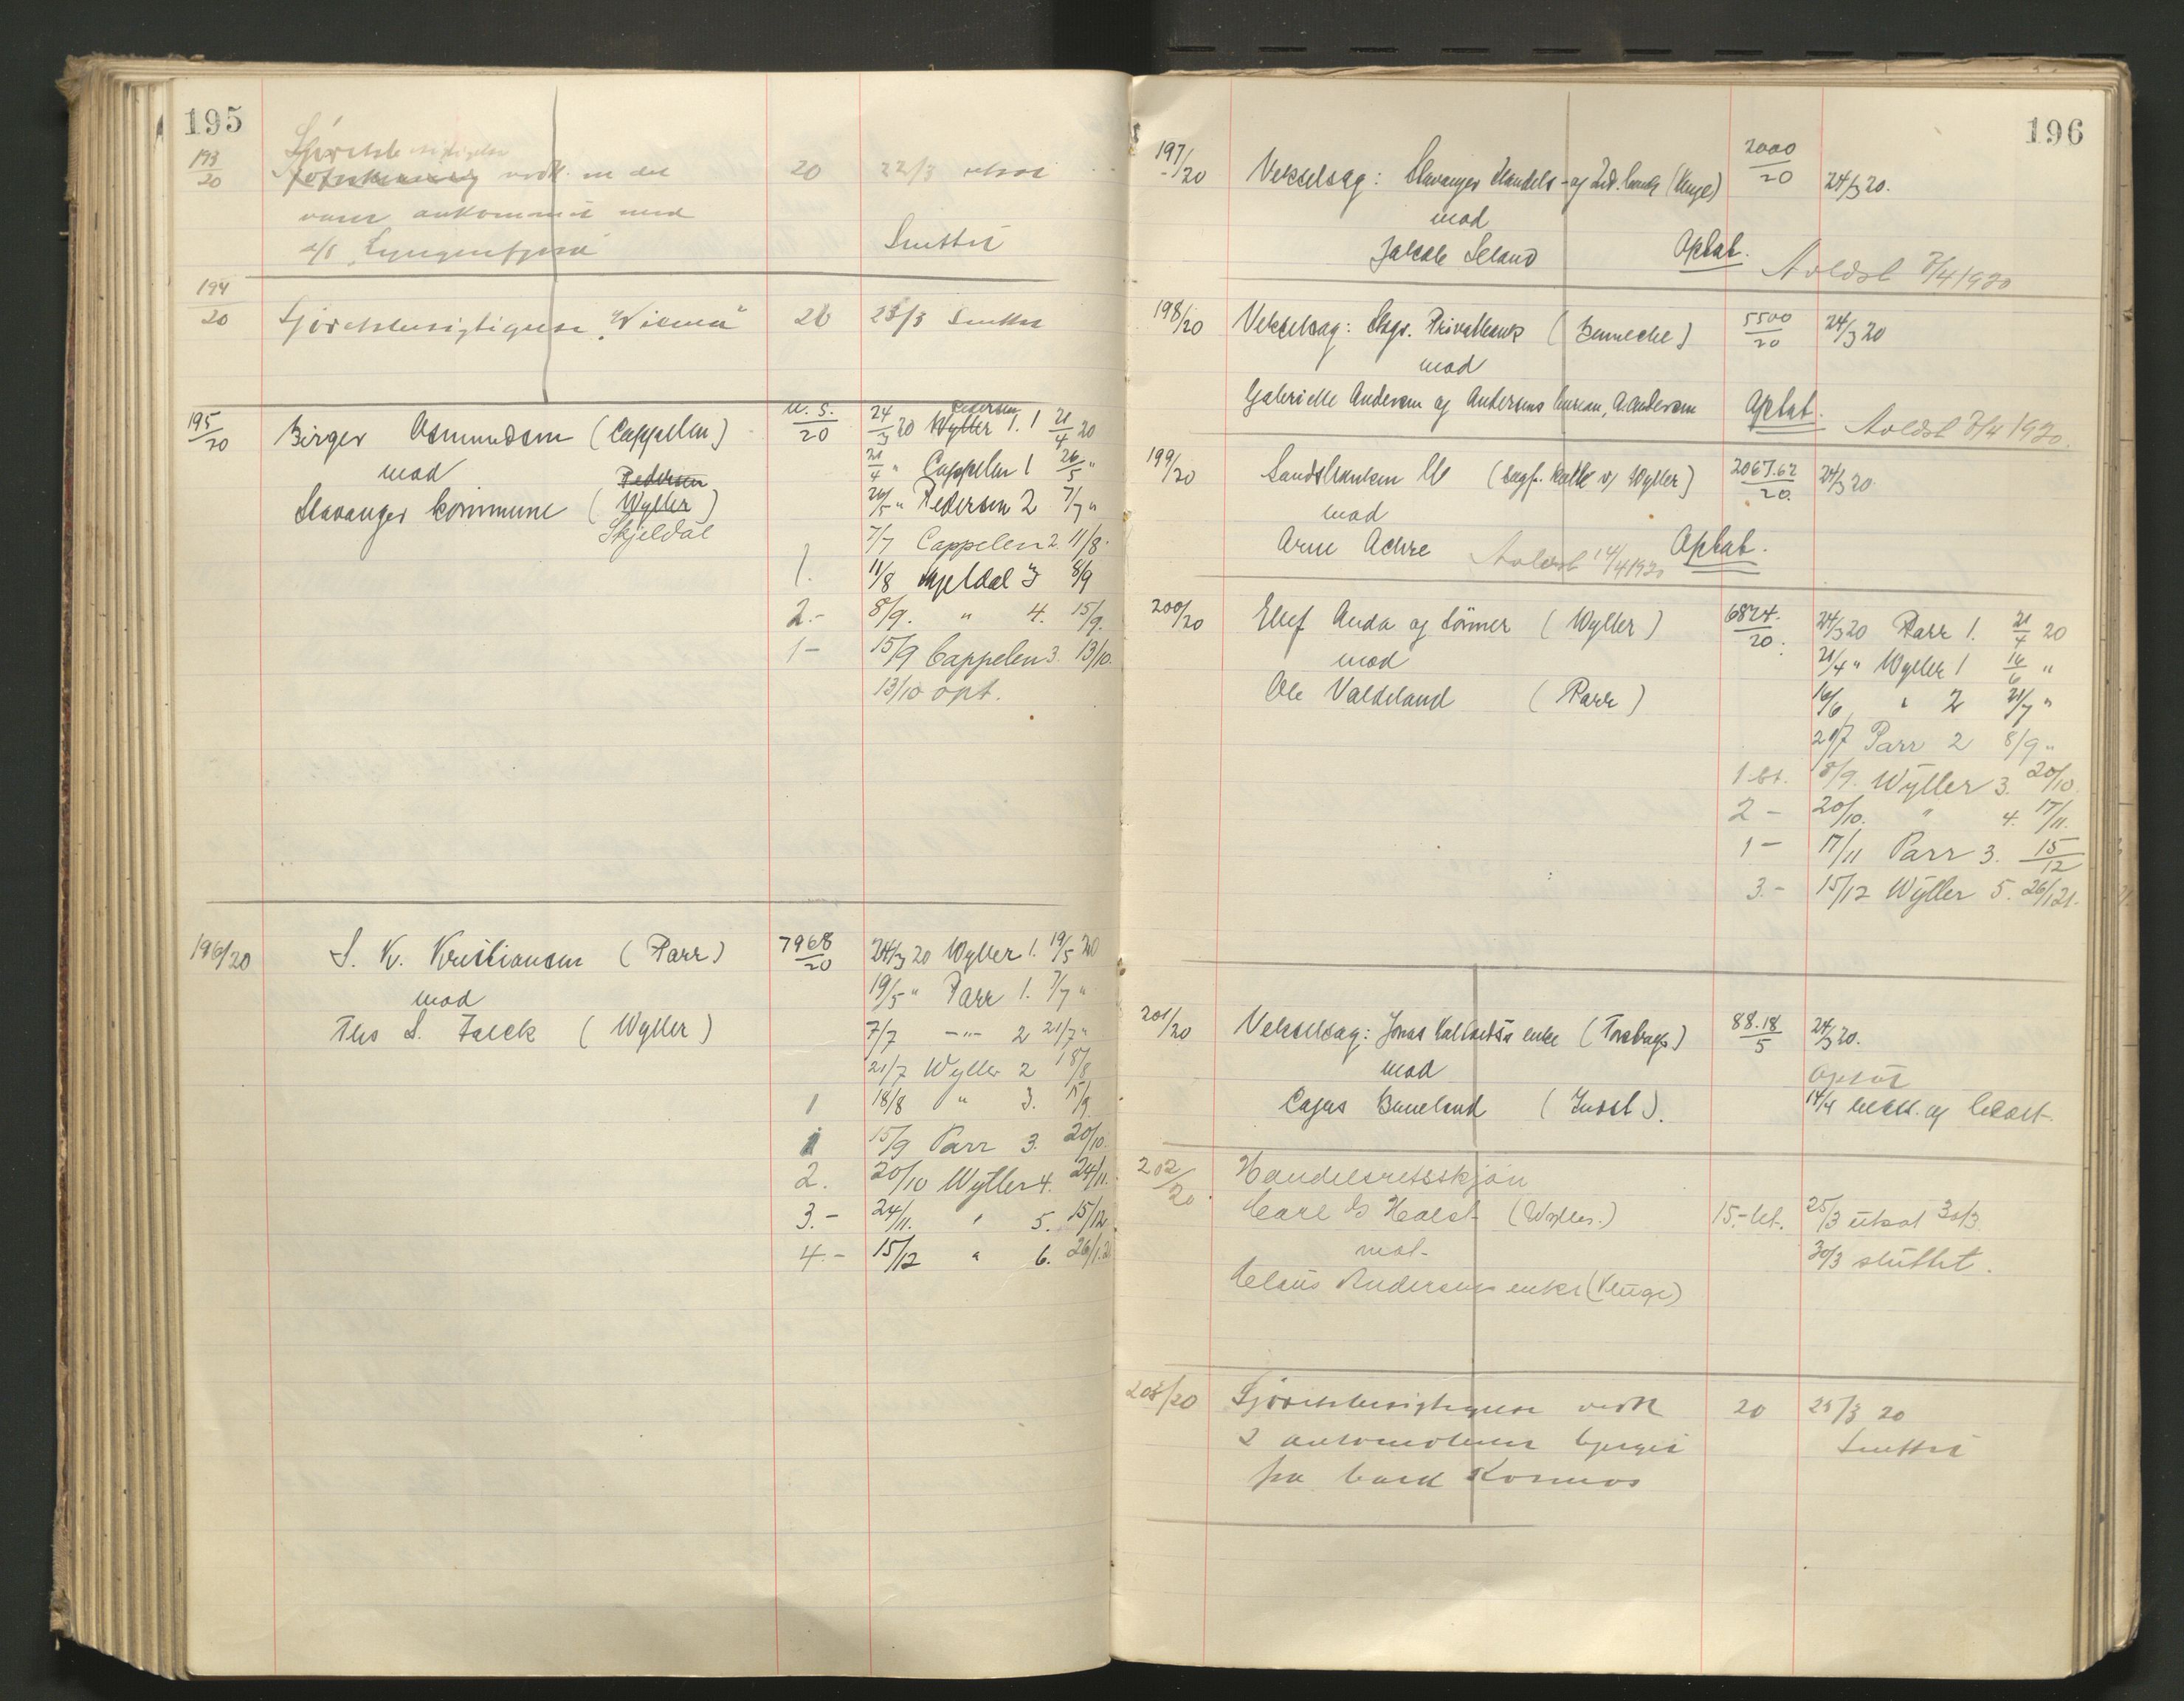 195
193/20 vedk. en del 20 22/3
varer ankommet med
Sluttet
194/20 Sjørettsbesigtigelse 20 23/3 Sluttet
195/20 Birger Asmundsen (Cappelen) u.s./20 24/3 20 Wyller 1. 21/4 20
Pedersen
mod 21/4 " Cappelen 1 26/5 "
Pedersen
Stavanger kommune (Wyller) 26/5 " Pedersen 2 7/7 "
Skjeldal
7/7 Cappelen 2. 11/8.
1. 11/8 Skjeldal 3 8/9
2.- 8/9. " 4. 15/9.
1- 15/9 Cappelen 3. 13/10.
13/10 opt.
196/20 S. K. Kristiansen (Parr) 7968/20 24/3 20 Wyller 1. 19/5 20
mod 19/5 " Parr 1. 7/7 "
Ths S. Falck (Wyller) 7/7 -"- 2 21/7 "
21/7 Wyller 2 18/8
1 18/8 " 3. 15/9.
1 15/9 Parr 3. 20/10.
2. 20/10 Wyller 4. 24/11.
3.- 24/11. " 5. 15/12
4.- 15/12 " 6. 26/1.21
196
197/20 Vekselsag: Stavanger Handels- og Ind. bank (Kluge) 2000/20 24/3 20.
mod
Jakob Seland Optat. Avldst 7/4 1920
198/20 Vekselsag: Stvgr. Privatbank (Benneche) 5500/20 24/3 20
mod
Gabrielle Andersen og Andersens bureau, A. Andersen Optat. Avldst 7/4 1920.
199/20 2067.62/20 24/3 20
mod
Arne Adne Avldst 14/4 1920 Optat.
200/20 Ellef Anda og Sønner (Wyller) 6824./20. 24/3 20 Parr 1. 21/4 20
mod 21/4 " Wyller 1 16/6 "
Ole Valdeland (Parr) 16/6 " 2 21/7 "
21/7 Parr 2 8/9 "
1 bt. 8/9. Wyller 3. 20/10.
2 - 20/10. " 4. 17/11.
1 - 17/11 Parr 3. 15/12
3.- 15/12 Wyller 5. 26/1 21.
201/20 Vekselsag: Jonas enke 88.18/5 24/3 20.
mod optat
14/4
202/20 Handelsretsskjøn
Carl G Holst (Wyller.) 15.- bet. 25/3 utsat 30/3.
mot- 30/3 sluttet.
Claus Andersens enke (Kluge)
203/20 Sjørettsbesigtigelse vedk 20 25/3 20
2 automobiler bjerget Sluttet
fra bark Kosmos